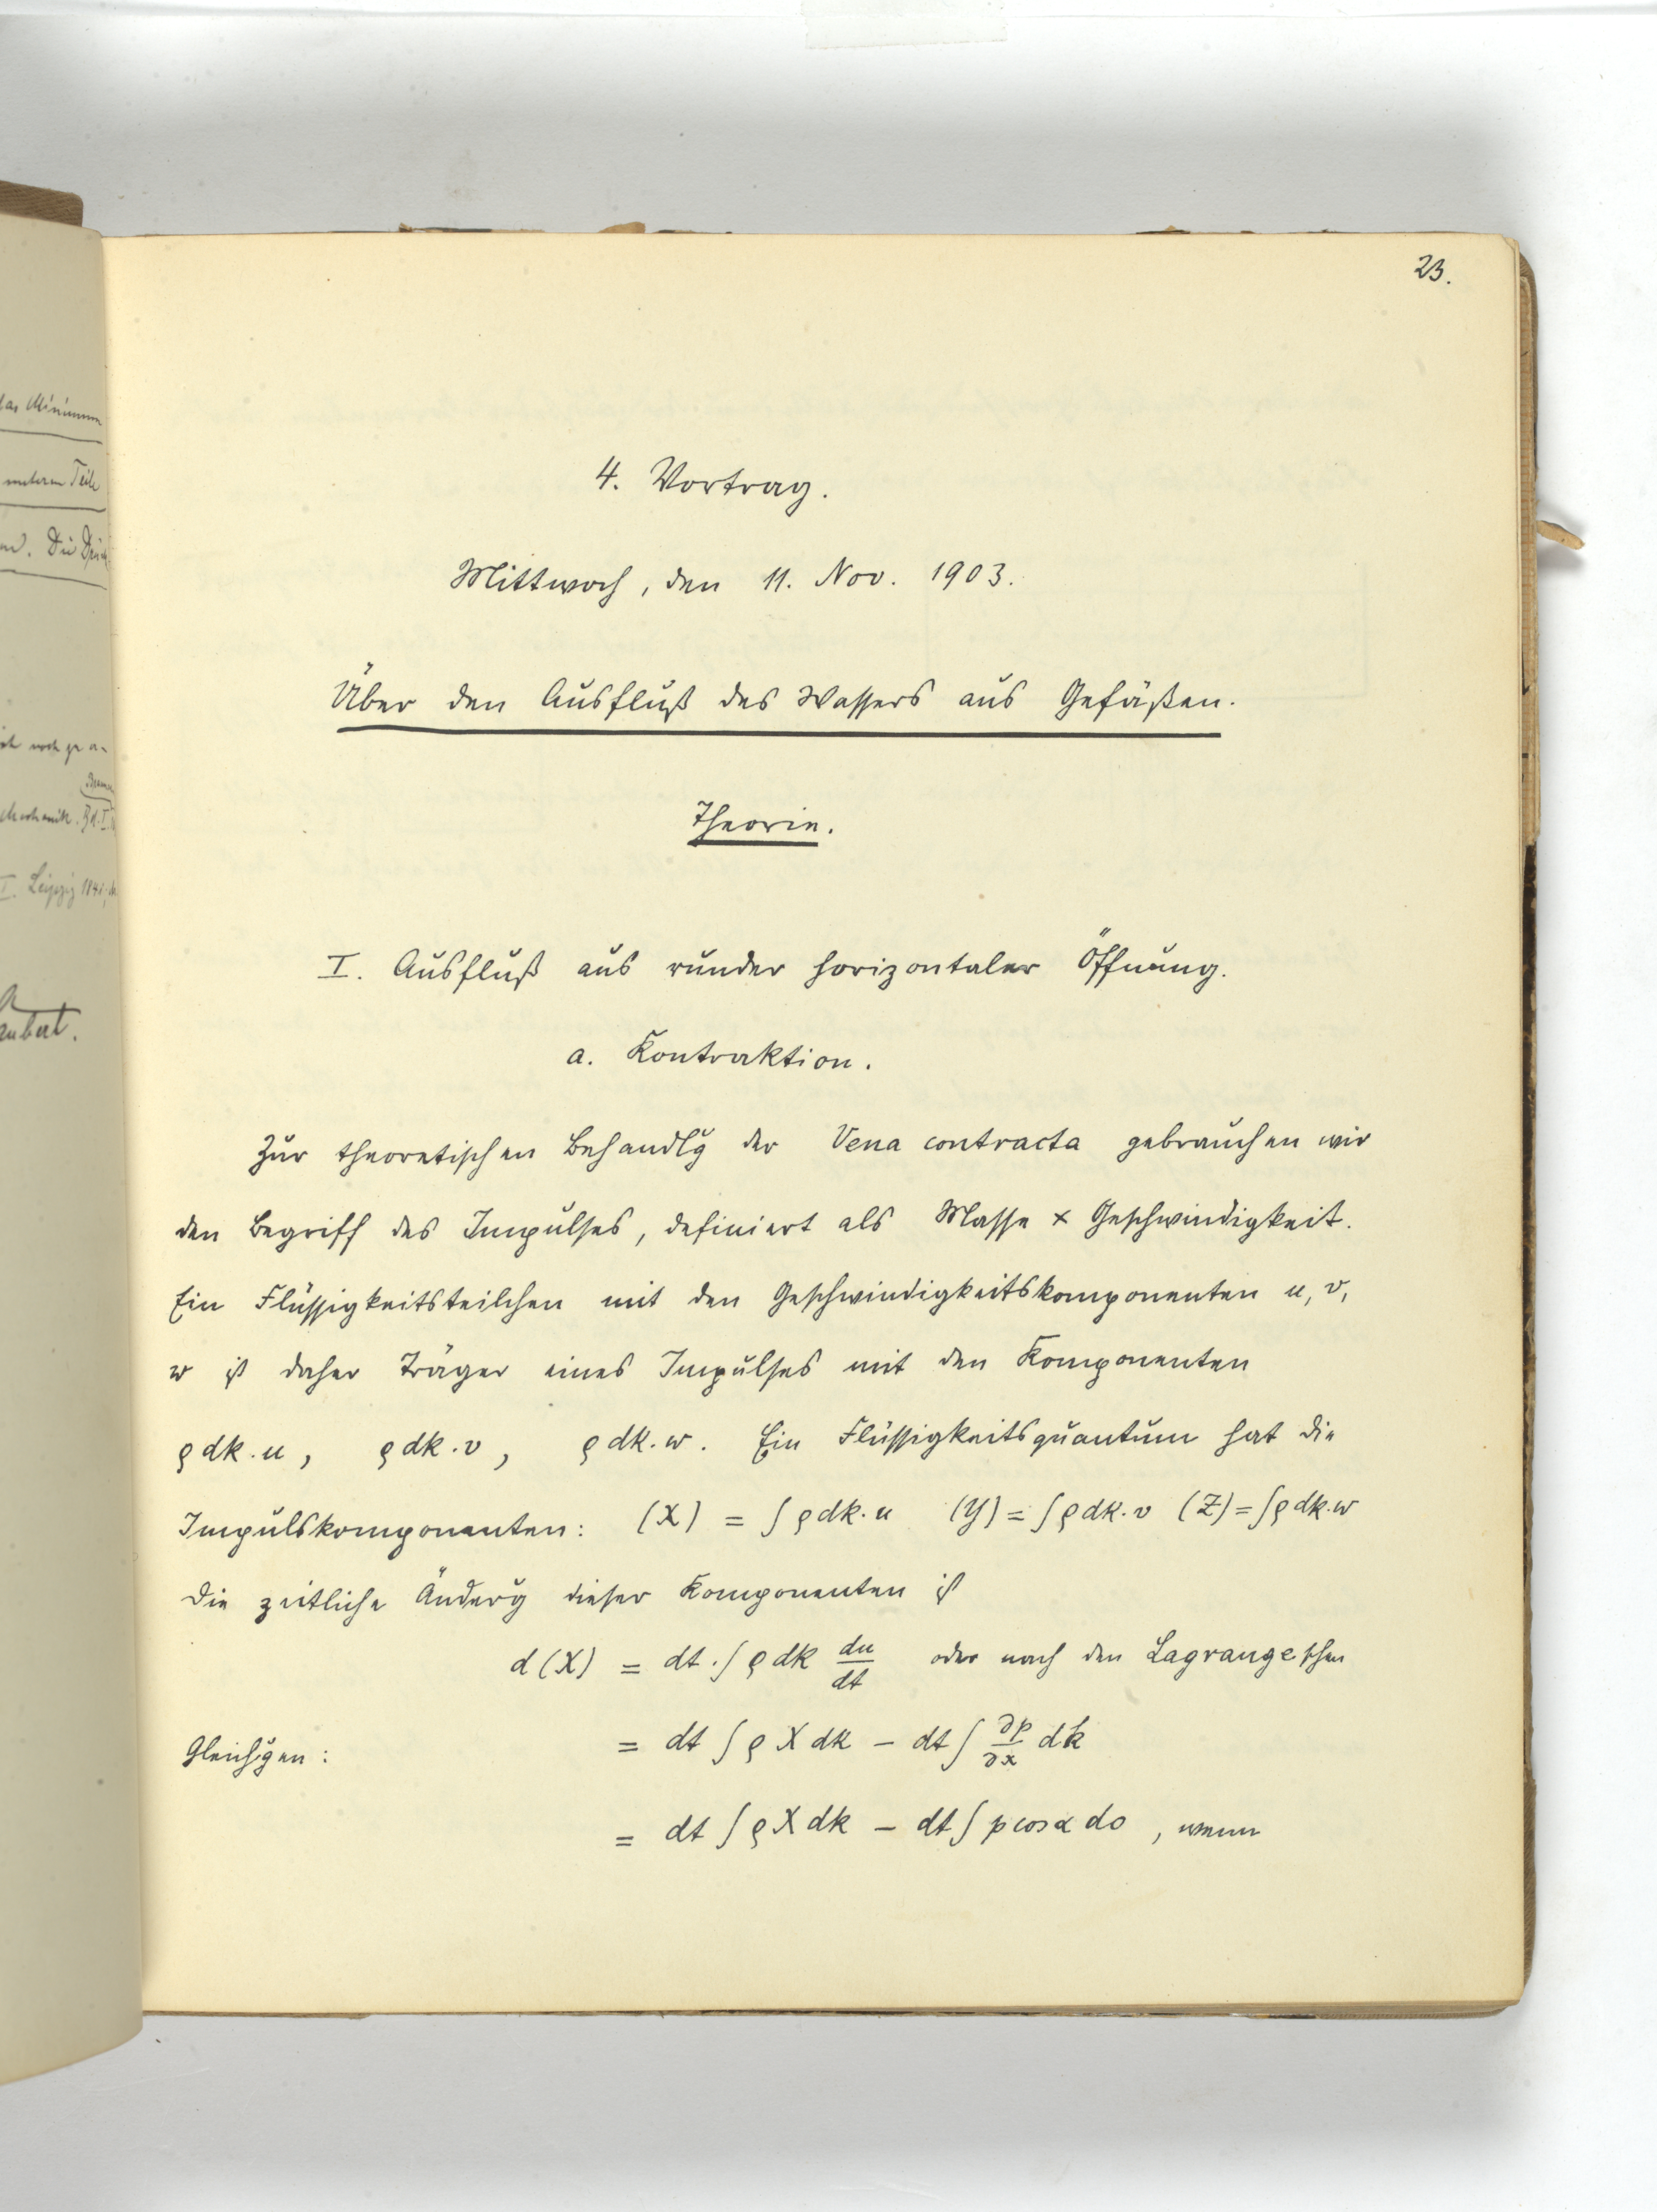 das Minimum
unteren Teile
Leipzig 1841;
23.
4. Vortrag.
Mittwoch, den 11. Nov. 1903.
Über den Ausfluß des Wassers aus Gefäßen.
Theorie.
I. Ausfluß aus runder horizontaler Öffnung.
a. Kontraktion.
Zur theoretischen Behandlg der Vena contracta gebrauchen wir
den Begriff des Impulses, definiert als Masse × Geschwindigkeit.
Ein Flüssigkeitsteilchen mit den Geschwindigkeitskomponenten u, v,
w ist daher Träger eines Impulses mit den Komponenten
ρ dk . u, ρ dk . v, ρ dk . w. Ein Flüssigkeitsquantum hat die
Impulskomponenten: (X) = ∫ ρ dk . u (Y) = ∫ ρ dk . v (Z) = ∫ ρ dk . w
Die zeitliche Änderg dieser Komponenten ist
d(X) = dt . ∫ ρ dk du/dt oder nach den Lagrangeschen
Gleichgen: = dt ∫ ρ X dk – dt ∫ ∂p/∂x dk
= dt ∫ ρ X dk – dt ∫ p cos α do, wenn